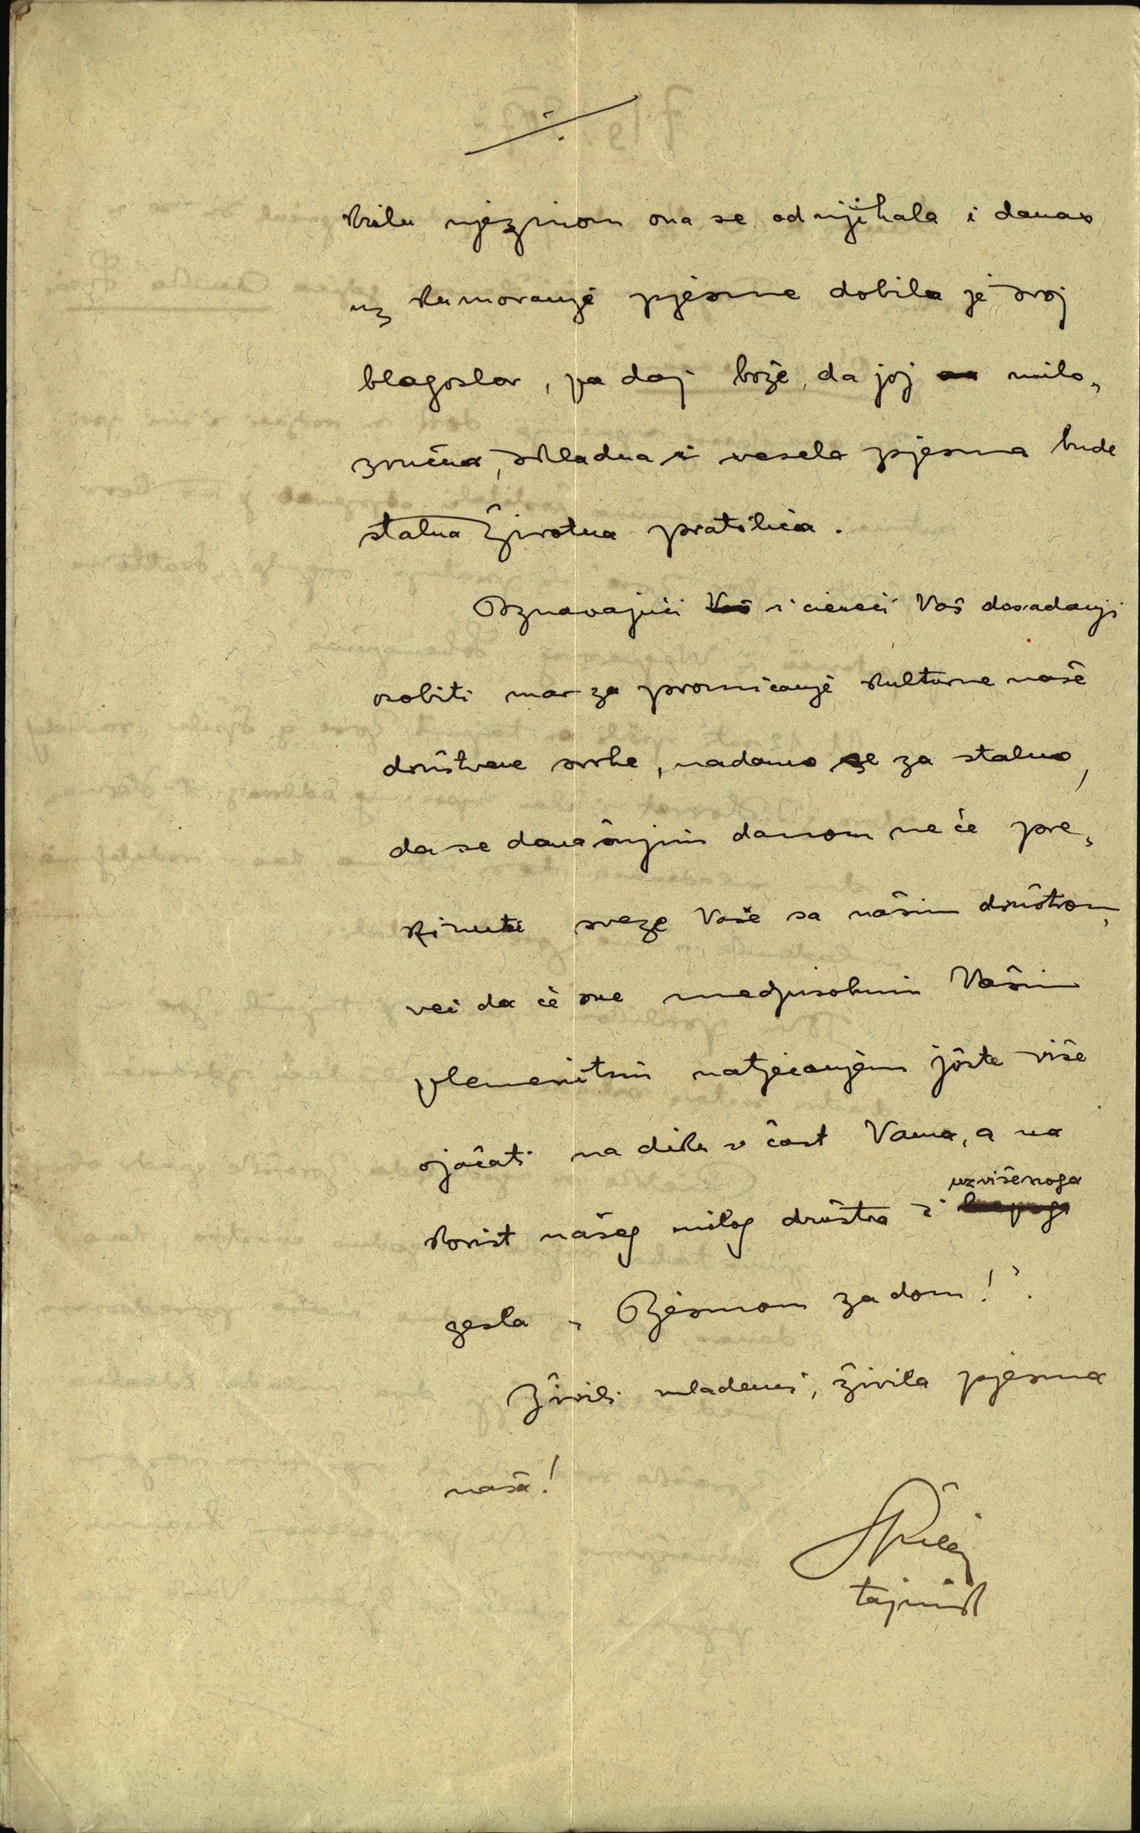 krilu njezinom ona se odnjihala i danas
uz rumoranje pjesme dobila je svoj
blagoslov, pa daj bože, da joj milo„
zvučna, skladna i vesela pjesma bude
stalna životna pratilica.
Poznavajući Vaš i cieneći Vaš dosadanji
osobiti mar za promicanje kulturne naše
društvene svrhe, nadamo se za stalno,
da se današnjim danom ne će pre„
kinuti sveze Vaše sa našim društvom,
već da će sve medjusobnim Vašim
plemenitim natjecanjem jošte više
ojačati na diku i čast Vama, a na
uzvišenoga
korist našeg milog društva i
gesla „Pjesmom za dom!"
Živili mladenci, živila pjesma
naša!
tajnik